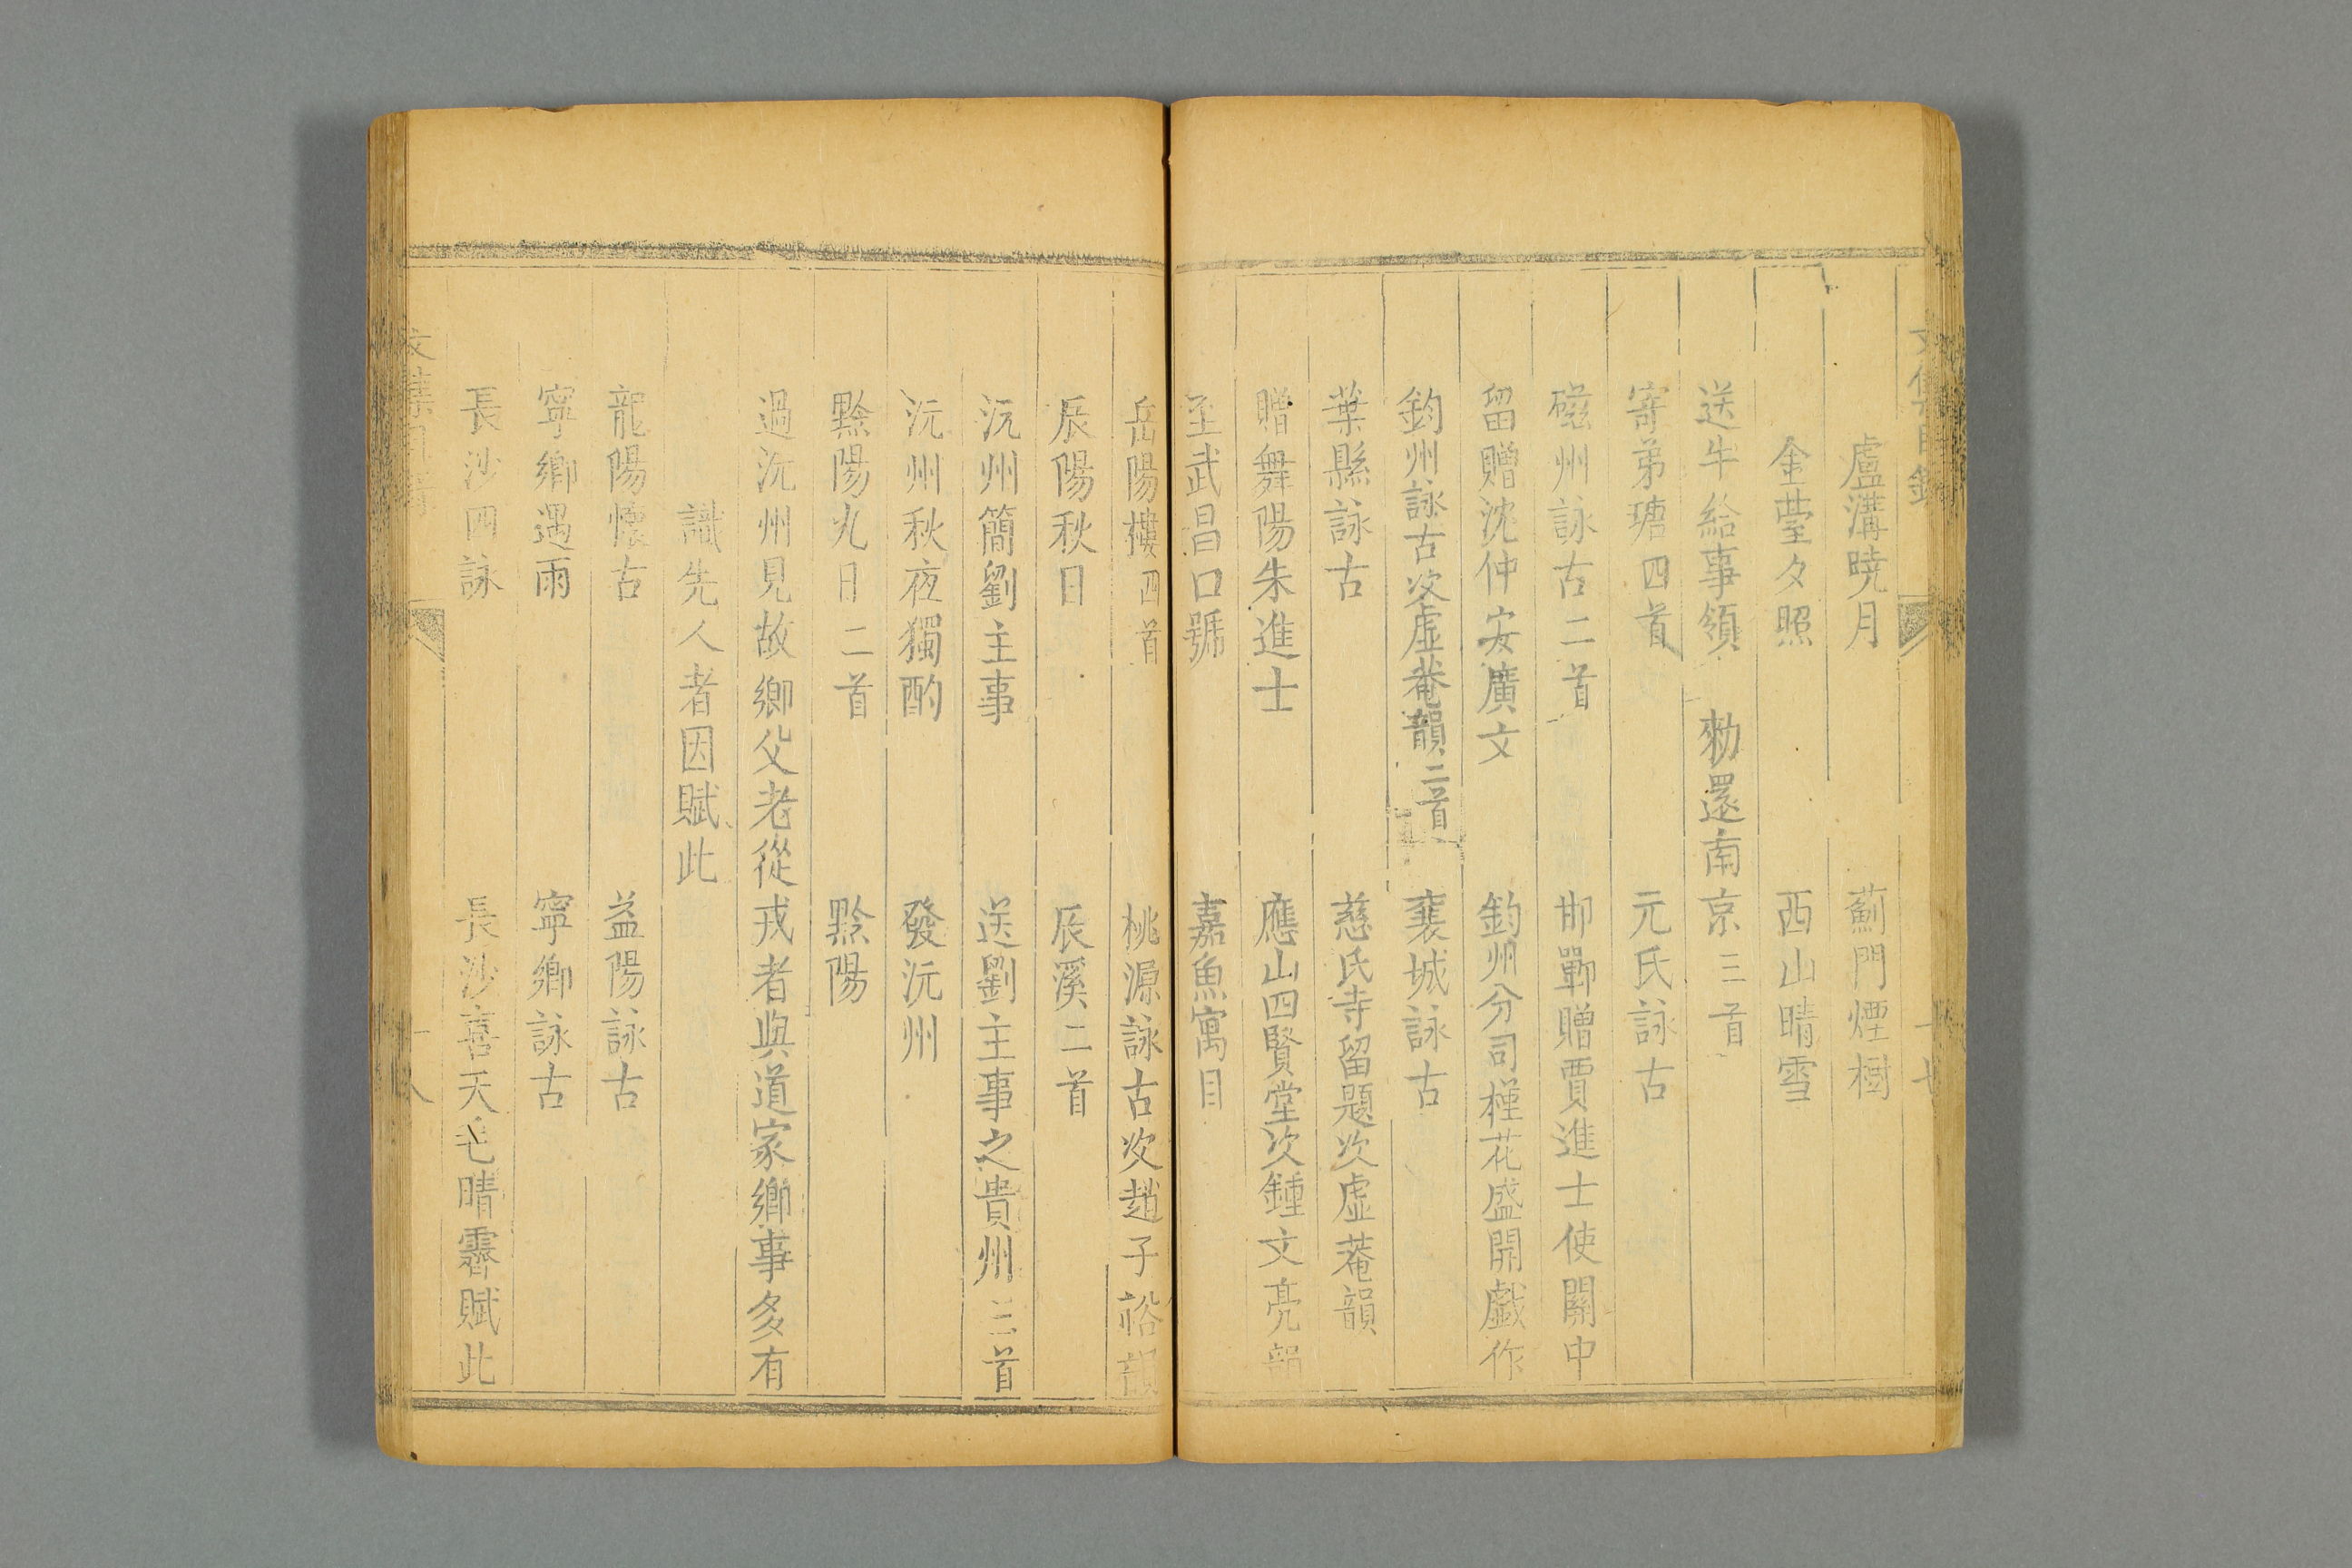 盧溝曉月　薊門煙樹
金臺夕照　西山晴雪
送牛給事領　勑還南京三首
寄弟瑭四首　元氏詠古
磁州詠古二首　邯鄲贈賈進士使關中
留贈沈仲安廣文　鈞州分司槿花盛開戲作
鈞州詠古次虛菴韻二首　襄城詠古
葉縣詠古　慈氏寺留題次虛菴韻
贈舞陽朱進士　應山四賢堂次鍾文亮韻
至武昌口號　嘉魚寓目
岳陽樓四首　桃源詠古次趙子裕韻
辰陽秋日　辰溪二首
沅州簡劉主事　送劉主事之貴州三首
沅州秋夜獨酌　發沅州
黔陽九日二首　黔陽
過沅州見故鄉父老從戎者與道家鄉事多有
識先人者因賦此
龍陽懷古　益陽詠古
寧鄉遇雨　寧鄉詠古
長沙四詠　長沙喜天宅晴霽賦此